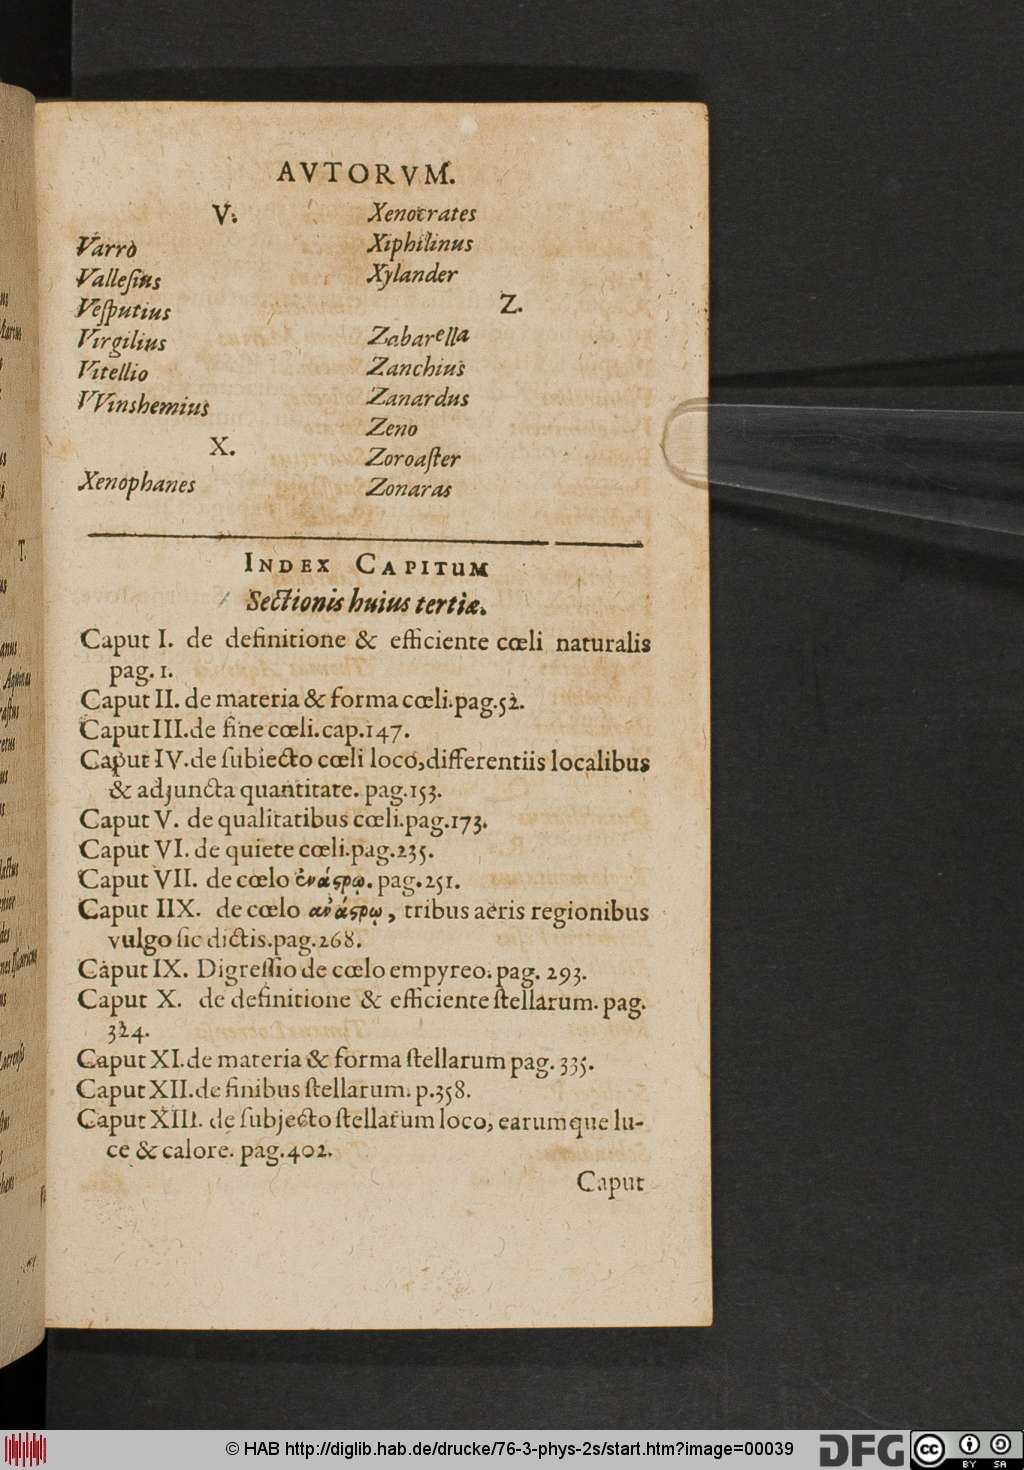 AVTORVM.
V.
Varro
Vallesius
Vesputius
Virgilius
Vitellio
VVinshemius
X.
Xenophanes
Xenocrates
Xiphilinus
Xylander
Z.
Zabarella
Zanchius
Zanardus
Zeno
Zoroaster
Zonaras
INDEX CAPITUM
Sectionis huius tertiæ.
Caput I. de definitione & efficiente cœli naturalis
pag. 1.
Caput II. de materia & forma cœli. pag. 52.
Caput III. de fine cœli. cap. 147.
Caput IV. de subiecto cœli loco, differentiis localibus
& adjuncta quantitate. pag. 153.
Caput V. de qualitatibus cœli. pag. 173.
Caput VI. de quiete cœli. pag. 235.
Caput VII. de cœlo ἐνάςρῳ. pag. 251.
Caput IIX. de cœlo ανάςρῳ, tribus aëris regionibus
vulgo sic dictis. pag. 268.
Caput IX. Digressio de cœlo empyreo. pag. 293.
Caput X. de definitione & efficiente stellarum. pag.
324.
Caput XI. de materia & forma stellarum pag. 335.
Caput XII. de finibus stellarum. p. 358.
Caput XIII. de subjecto stellarum loco, earumque lu-
ce & calore. pag. 402.
Caput
© HAB http://diglib.hab.de/drucke/76-3-phys-2s/start.htm?image=00039
DFG
cc BY SA